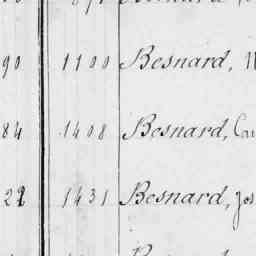 90 1100 Besnard,
84 1408 Besnard,
22 1431 Besnard, Jos